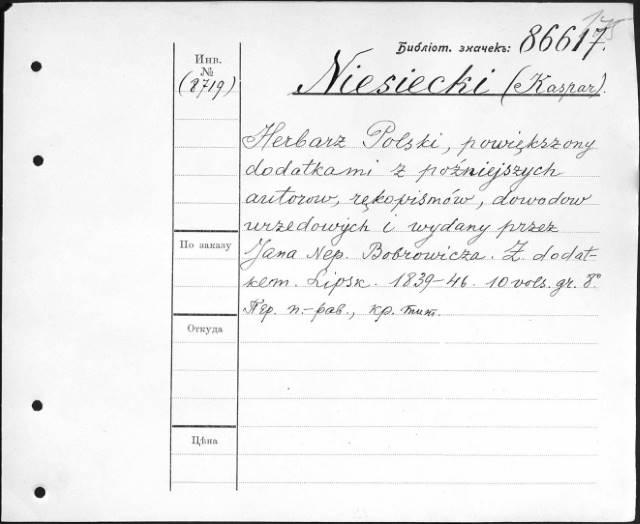 175
Библіот. значекъ: 86617.
Инв.
№
(2719)
Niesiecki (Kaspar).
Herbarz Polski, powiększony
dodatkami z poźniejszych
autorow, rękopismów, dowodow
urzędowych i wydany przez
По заказу
Jana Nep. Bobrowicza. Z dodat-
kem. Lipsk. 1839-46. 10 vols. gr. 8°
Пер. п.-
кр. тит.
Откуда
Цѣна